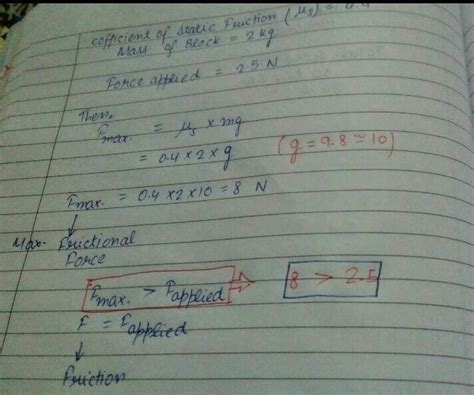 cofficient of Static Friction (μs) = 0.4
Mass of Block = 2 kg
Force applied = 2.5 N
Then,
Fmax. = μs × mg
= 0.4 × 2 × g (g = 9.8 ≃ 10)
Fmax. = 0.4 × 2 × 10 = 8 N
↓
Max. Frictional
Force
Fmax. > Fapplied ⇒ 8 > 2.5
F = Fapplied
↓
Friction